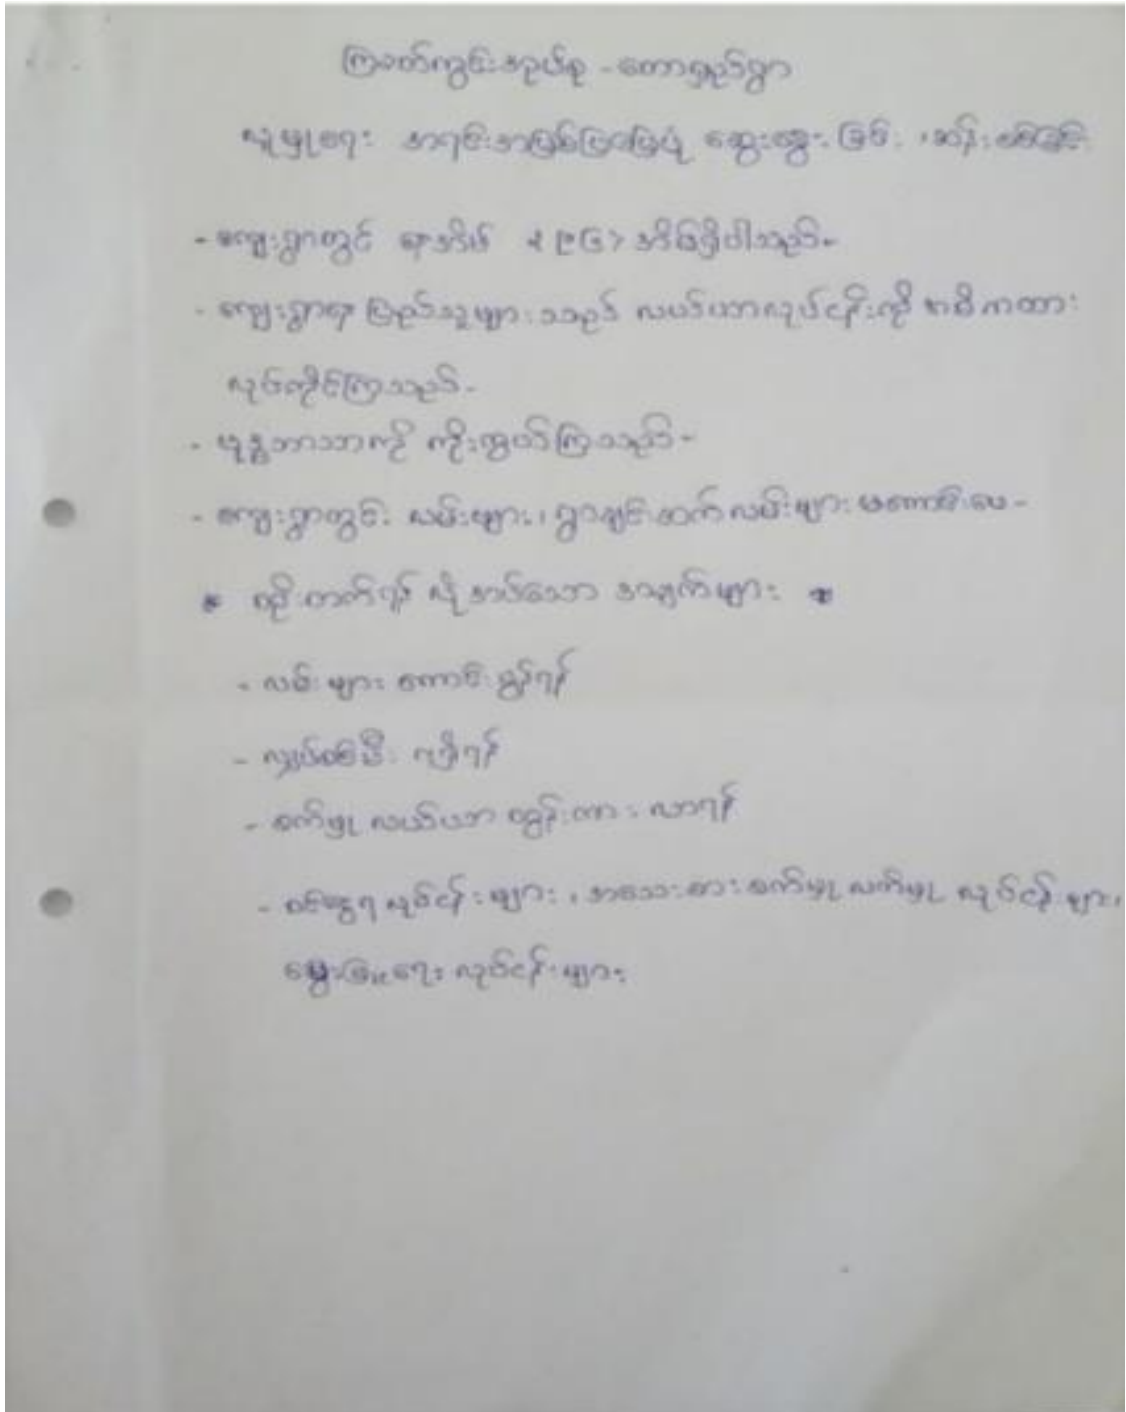 ကြခတ်ကွင်းအုပ်စု - တောရှည်ရွာ
လူမှုရေး အရင်းအမြစ်ပြမြေပုံ ဆွေးနွေးခြင်း ၊ ဆန်းစစ်ခြင်း
- ကျေးရွာတွင် နေအိမ် အိမ်ရှိပါသည်-
- ကျေးရွာရှိ ပြည်သူများသည် လယ်ယာလုပ်ငန်းကို အဓိကထား
လုပ်ကိုင်ကြသည်-
- ဗုဒ္ဓဘာသာကို ကိုးကွယ်ကြသည်-
- ကျေးရွာတွင်း လမ်းများ ၊ ရွာချင်းဆက်လမ်းများ မကောင်းပေ-
* စဉ်းတက်ရန် လိုအပ်သော အချက်များ *
- လမ်းများ ကောင်းမွန်ရန်
- လျှပ်စစ်မီး ရရှိရန်
- စက်မှု လယ်ယာ ထွန်းကား လာရန်
- စင်္ငွေရ လုပ်ငန်းများ ၊ အသေးစား စက်မှု လက်မှု လုပ်ငန်းများ ၊
မွေးမြူရေး လုပ်ငန်းများ